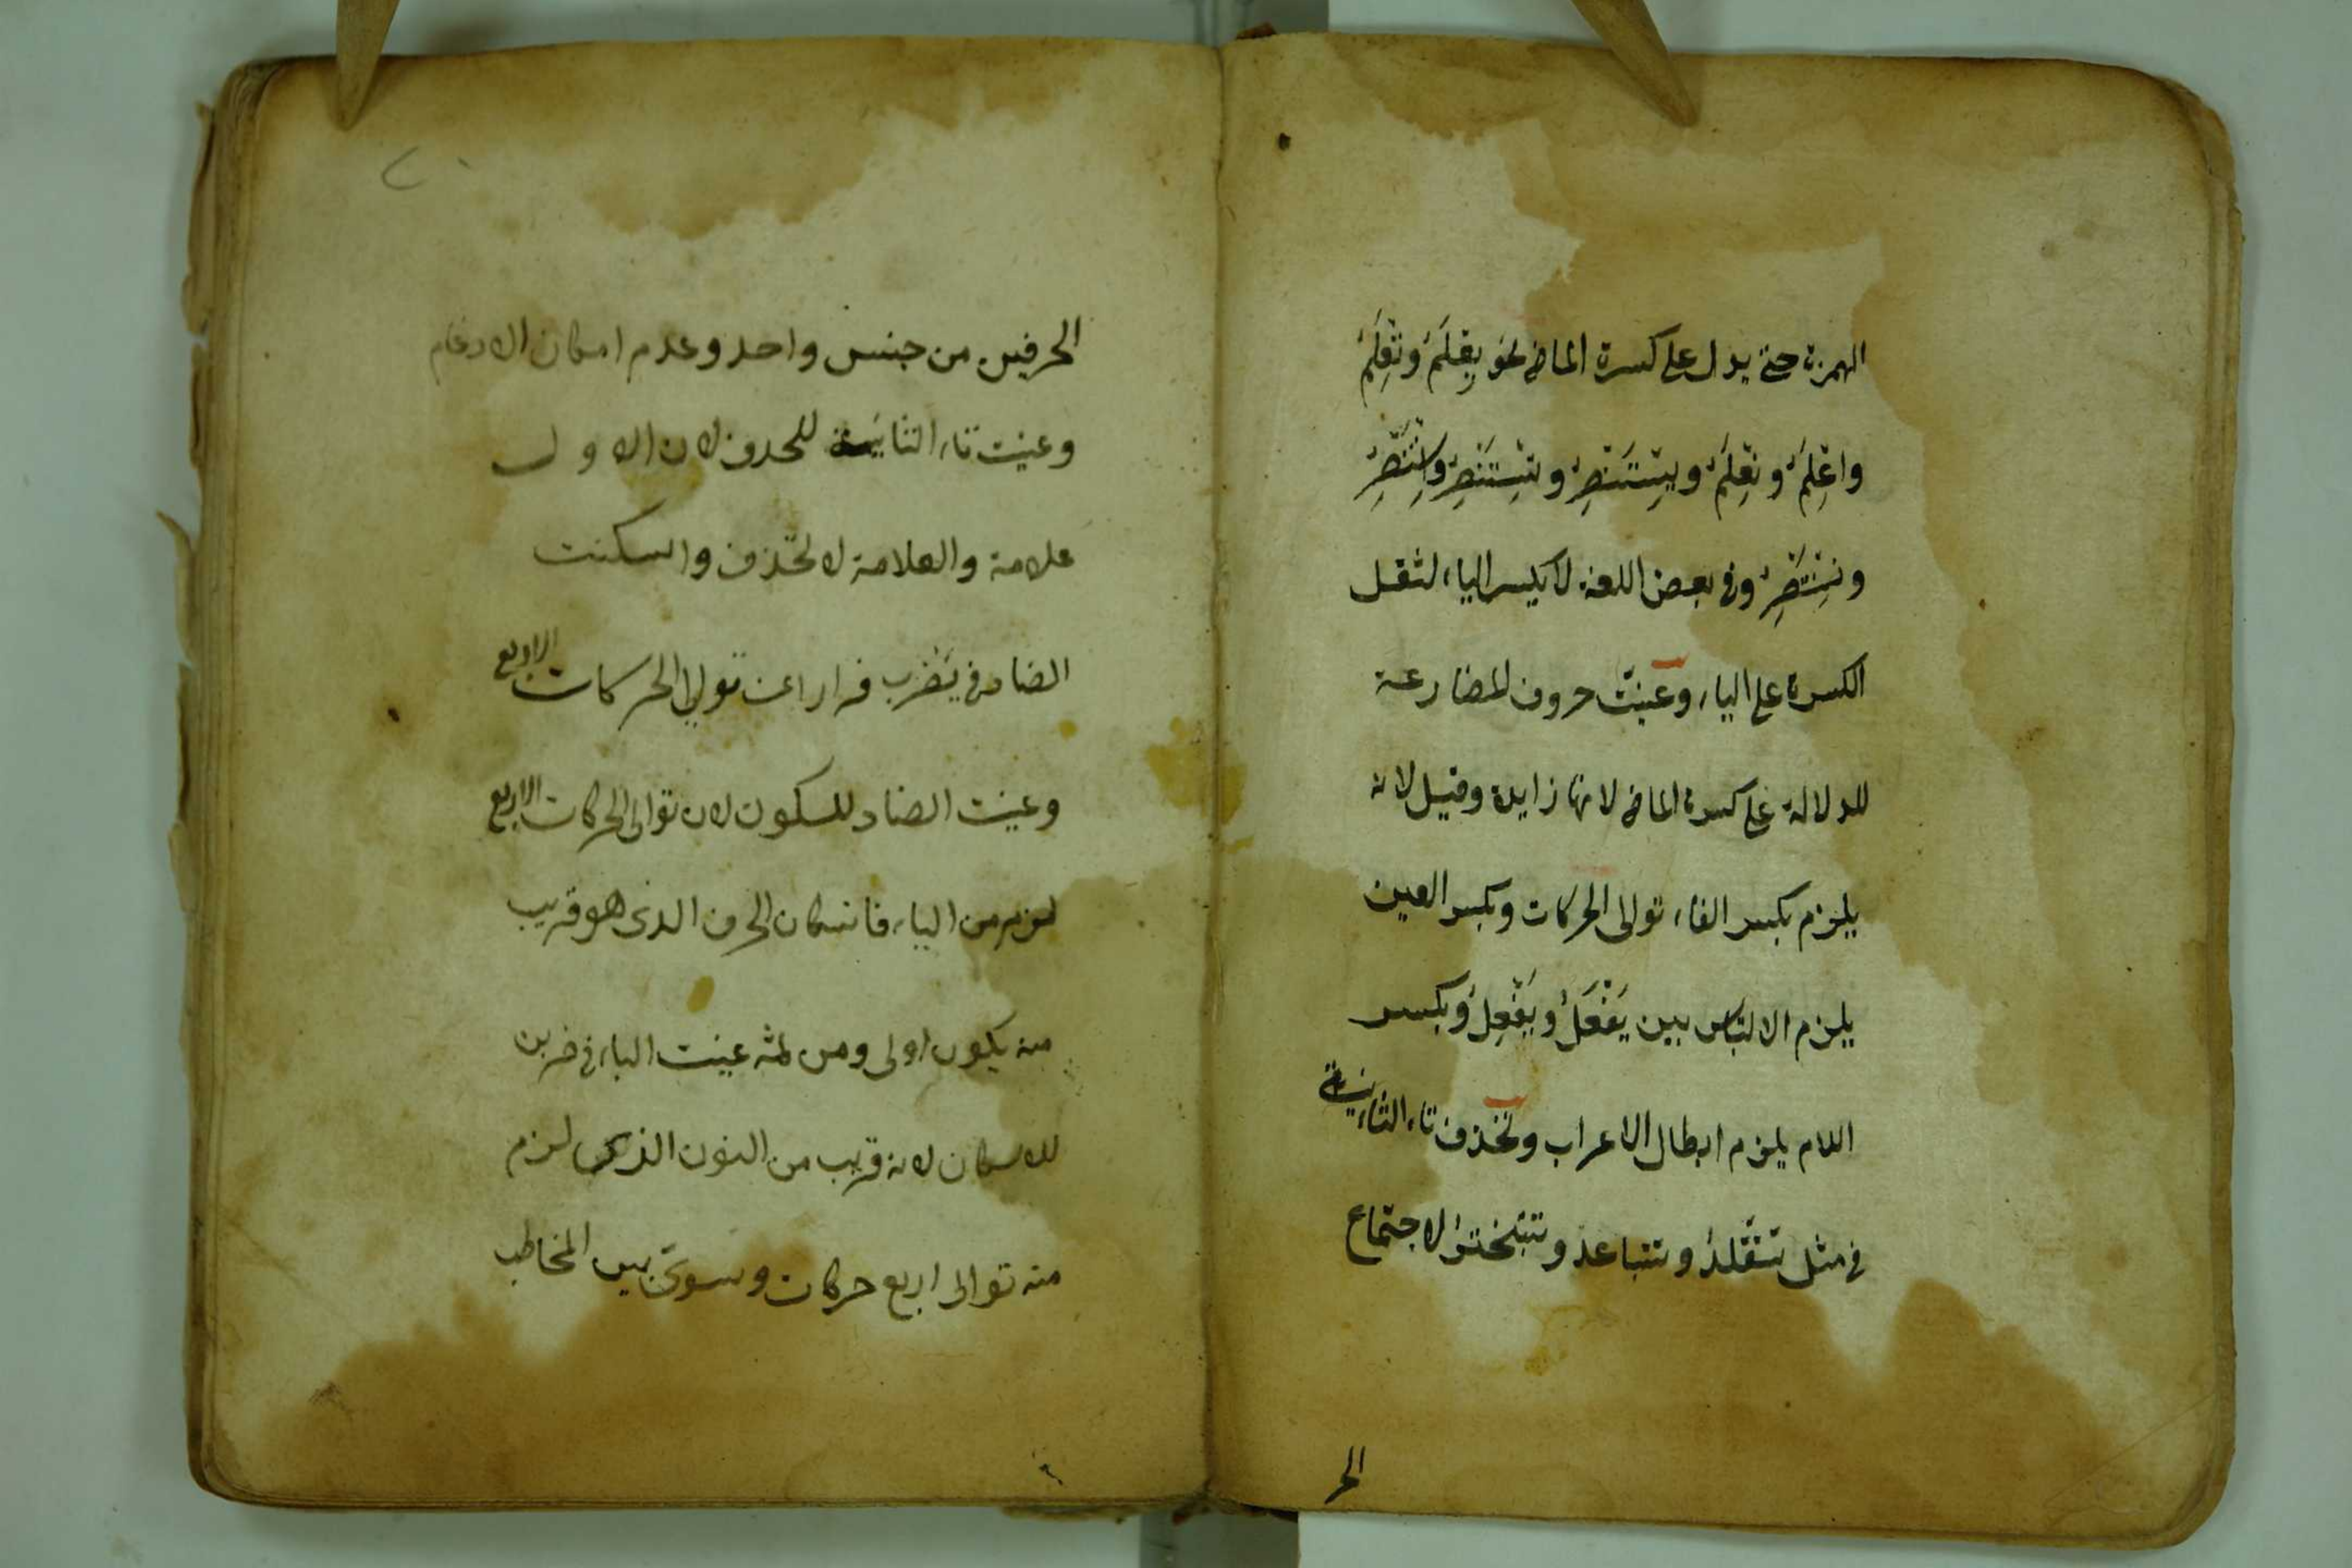 الهمزة حتى يدل على كسرة الماضى نحو يِعْلَمُ وتِعْلَمُ
واِعْلَمُ ونِعْلَمُ ويِسْتَنْصِرُ وتِسْتَنْصِرُ واِسْتَنْصِرُ
ونِسْتَنْصِرُ وفى بعض اللغة لا يكسر الياء لثقل
الكسرة على الياء وعينت حروف المضارعة
للدلالة على كسرة الماضى لانها زايدة وقيل لانه
يلزم بكسر الفاء توالى الحركات وبكسر العين
يلزم الالتباس بين يَفْعَلُ ويَفْعِلُ وبكسر
اللام يلزم ابطال الاعراب وتحذف تاء الثانية
فى مثل تتقلد وتتباعد وتتبختر لاجتماع
الحر
٢٠
الحرفين من جنس واحد وعدم امكان الادغام
وعينت تاء الثانية للحذف لان الاولى
علامة والعلامة لا تحذف واسكنت
الضاد فى يَضْرب فرارا عن توالى الحركات الاربع
وعينت الضاد للسكون لان توالى الحركات الاربع
لزم من الياء فاسكان الحرف الذى هو قريب
منه يكون اولى ومن ثمه عينت الباء فى ضربن
للاسكان لانه قريب من النون الذى لزم
منه توالى اربع حركات وسوى بين المخاطب